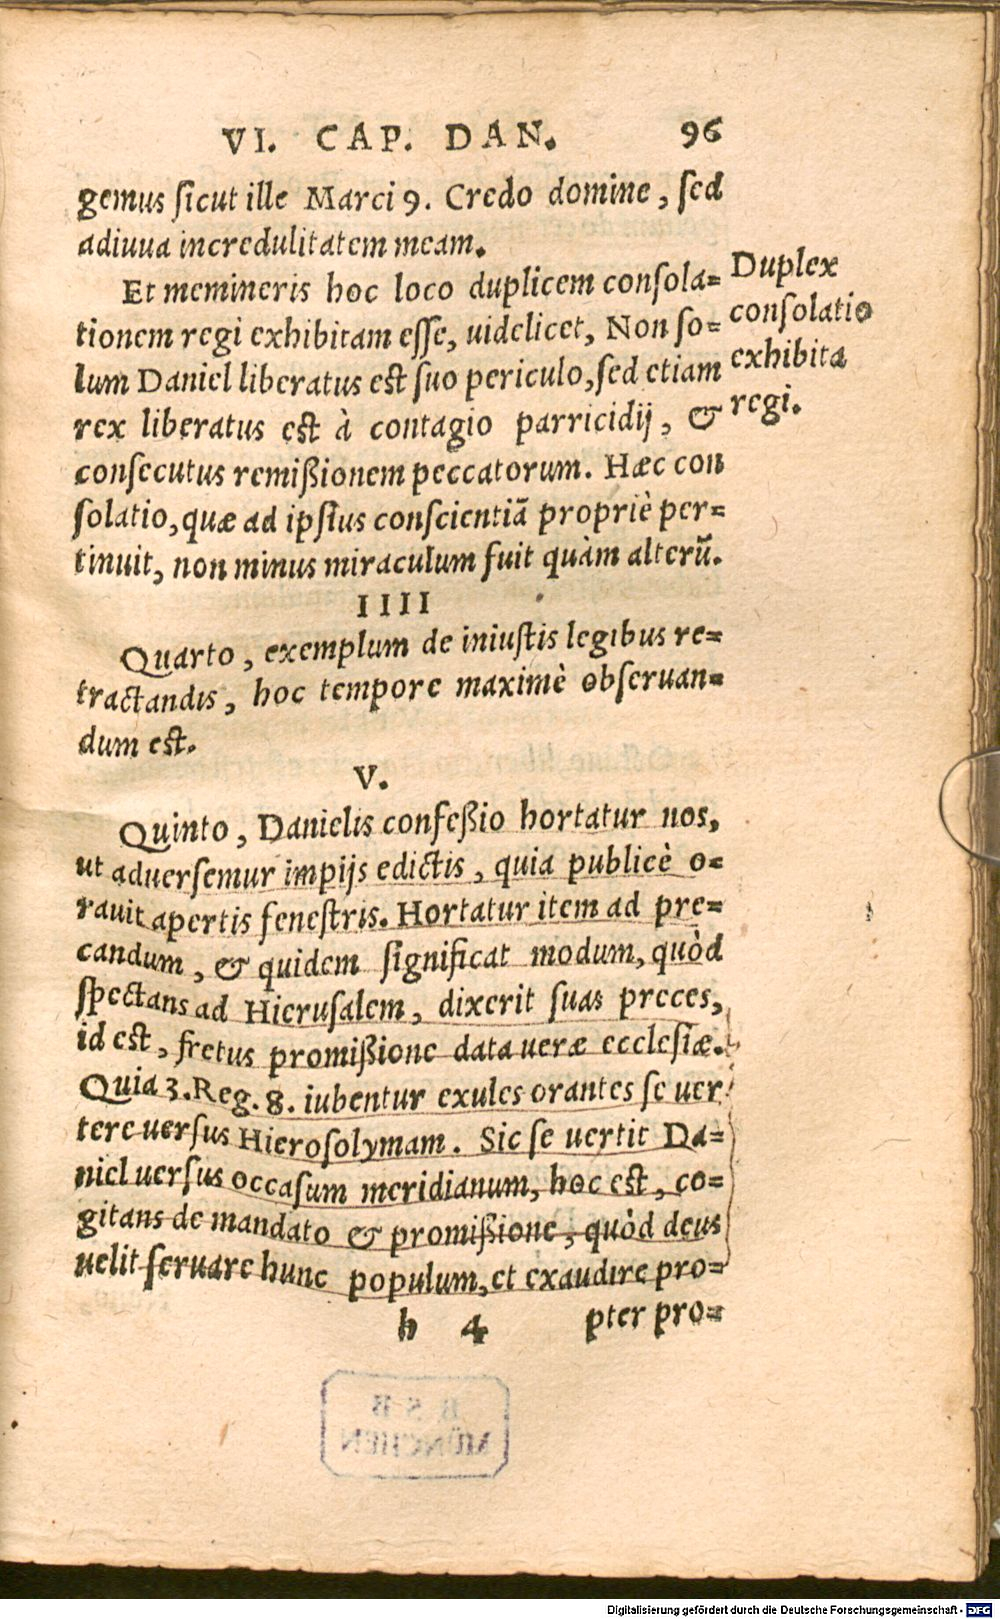 VI. CAP. DAN. 96
gemus ſicut ille Marci 9. Credo domine, ſed
adiuua incredulitatem meam.
Et memineris hoc loco duplicem conſola=
tionem regi exhibitam eſſe, uidelicet, Non ſo=
lum Daniel liberatus eſt ſuo periculo, ſed etiam
rex liberatus eſt à contagio parricidij, &
conſecutus remißionem peccatorum. Hæc con
ſolatio, quæ ad ipſius conſcientiã propriè per=
tinuit, non minus miraculum fuit quàm alterũ.
Duplex
conſolatio
exhibita
regi.
IIII
Quarto, exemplum de iniuſtis legibus re=
tractandis, hoc tempore maximè obſeruan=
dum eſt.
V.
Quinto, Danielis confeßio hortatur nos,
ut aduerſemur impijs edictis, quia publicè o=
rauit apertis feneſtris. Hortatur item ad pre=
candum, & quidem ſignificat modum, quòd
ſpectans ad Hieruſalem, dixerit ſuas preces,
id eſt, fretus promißione data ueræ eccleſiæ.
Quia 3. Reg. 8. iubentur exules orantes ſe uer
tere uerſus Hieroſolymam. Sic ſe uertit Da=
niel uerſus occaſum meridianum, hoc eſt, co=
gitans de mandato & promißione, quòd deus
uelit ſeruare hunc populum, et exaudire pro=
h 4 pter pro=
B S B
MÜNCHEN
Digitalisierung gefördert durch die Deutsche Forschungsgemeinschaft - DFG